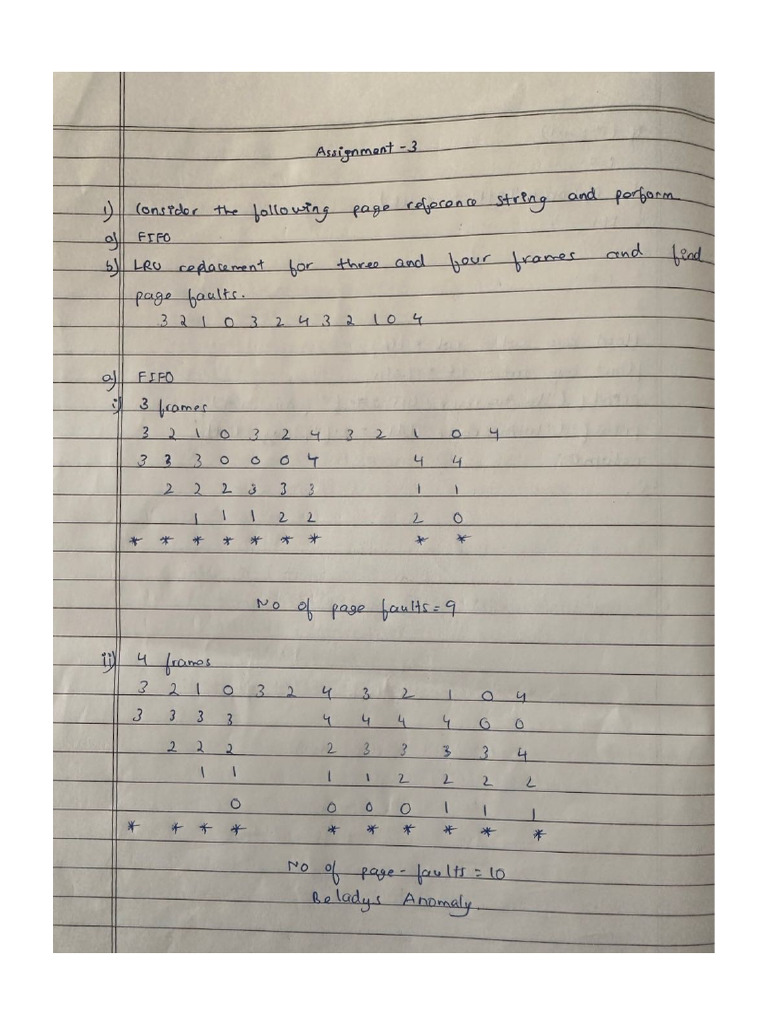 Assignment - 3
1) Consider the following page reference string and perform
a) FIFO
b) LRU replacement for three and four frames and find
page faults.
3 2 1 0 3 2 4 3 2 1 0 4
a) FIFO
i) 3 frames
3 2 1 0 3 2 4 3 2 1 0 4
3 3 3 0 0 0 4 4 4
2 2 2 3 3 3 1 1
1 1 1 2 2 2 0
* * * * * * * * *
No of page faults = 9
ii) 4 frames
3 2 1 0 3 2 4 3 2 1 0 4
3 3 3 3 4 4 4 4 0 0
2 2 2 2 3 3 3 3 4
1 1 1 1 2 2 2 2
0 0 0 0 1 1 1
* * * * * * * * * *
No of page - faults = 10
Beladys Anomaly.